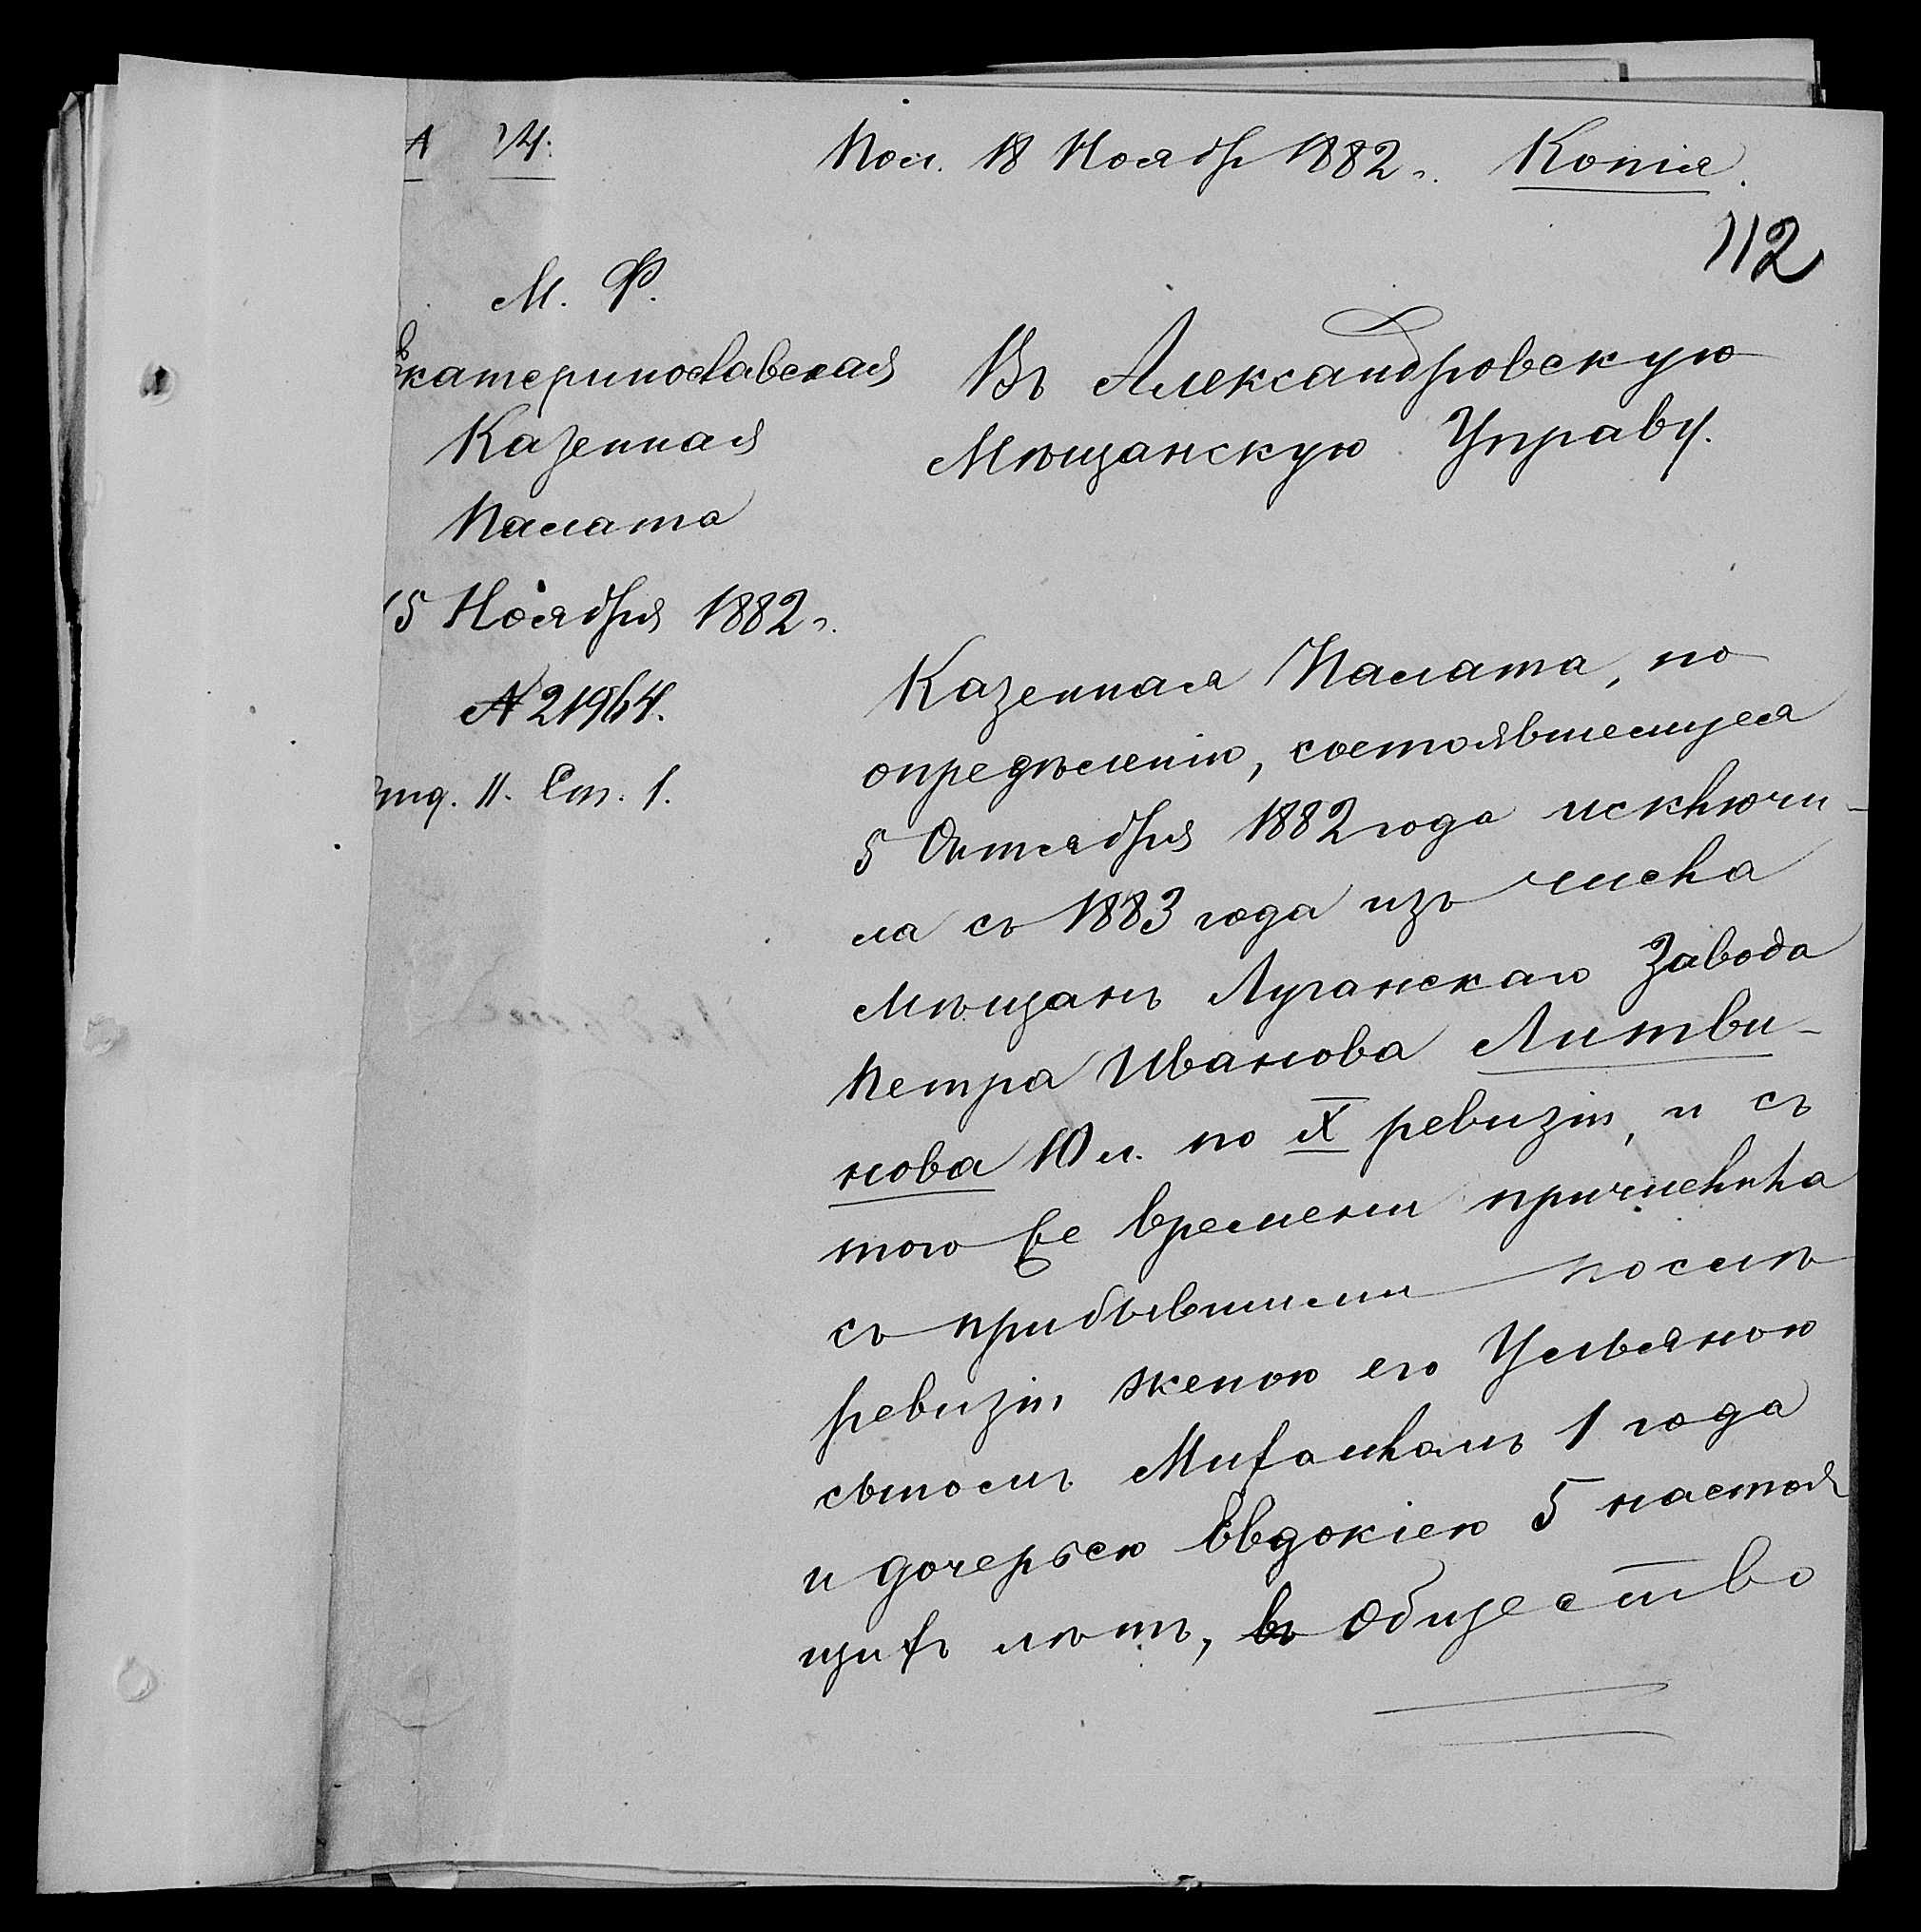 № 14.
Пол. 18 Ноябр 1882 г. Копія.
112
М. Ф.
Екатеринославская
Казенная
Палата
15 Ноября 1882 г.
№ 21964.
Отд. II. Ст. 1.
Въ Александровскую
Мѣщанскую Управу.
Казенная Палата, по
опредѣленію, состоявшемуся
5 Октября 1882 года исключи-
ла съ 1883 года изъ числа
мѣщанъ Луганскаго Завода
Петра Иванова Литви-
нова 10 л. по X ревизіи, и съ
того же времени причислила
съ прибывшими послѣ
ревизіи женою его Ульяною
сыномъ Михаиломъ 1 года
и дочерью Евдокіею 5 настоя
щихъ лѣтъ, въ Общество